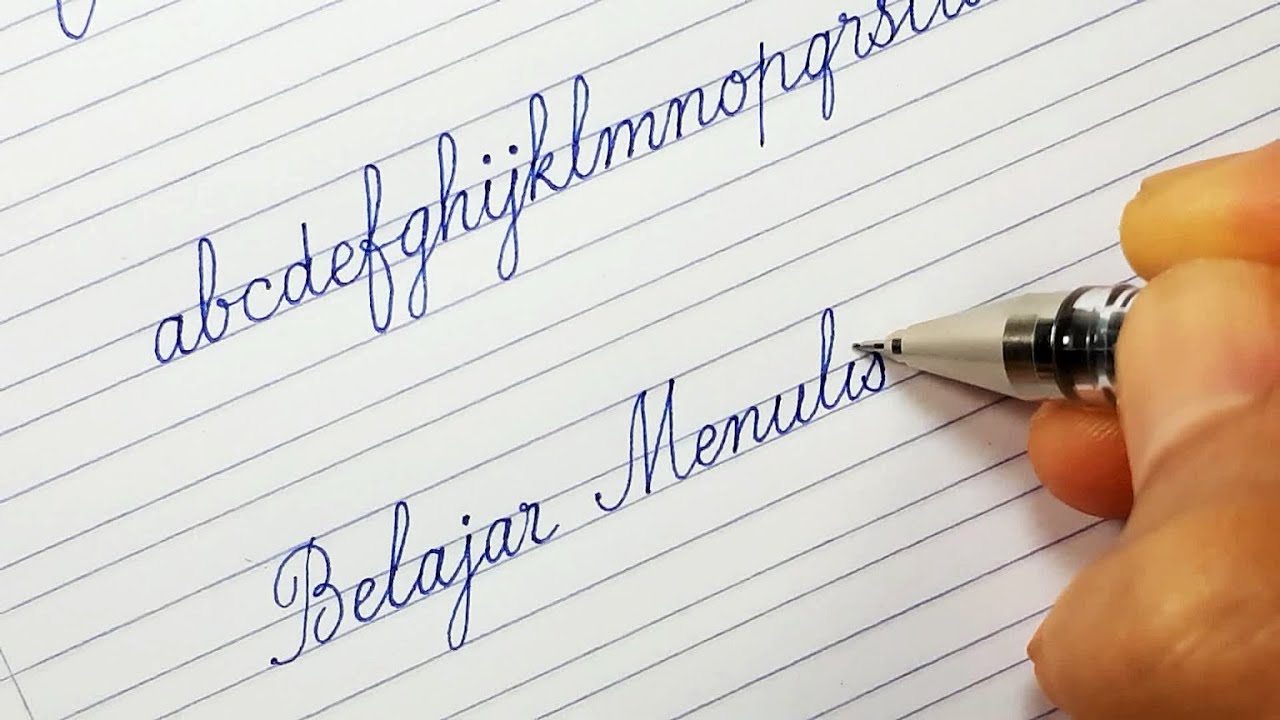 abcdefghijklmnopqrst
Belajar Menulis